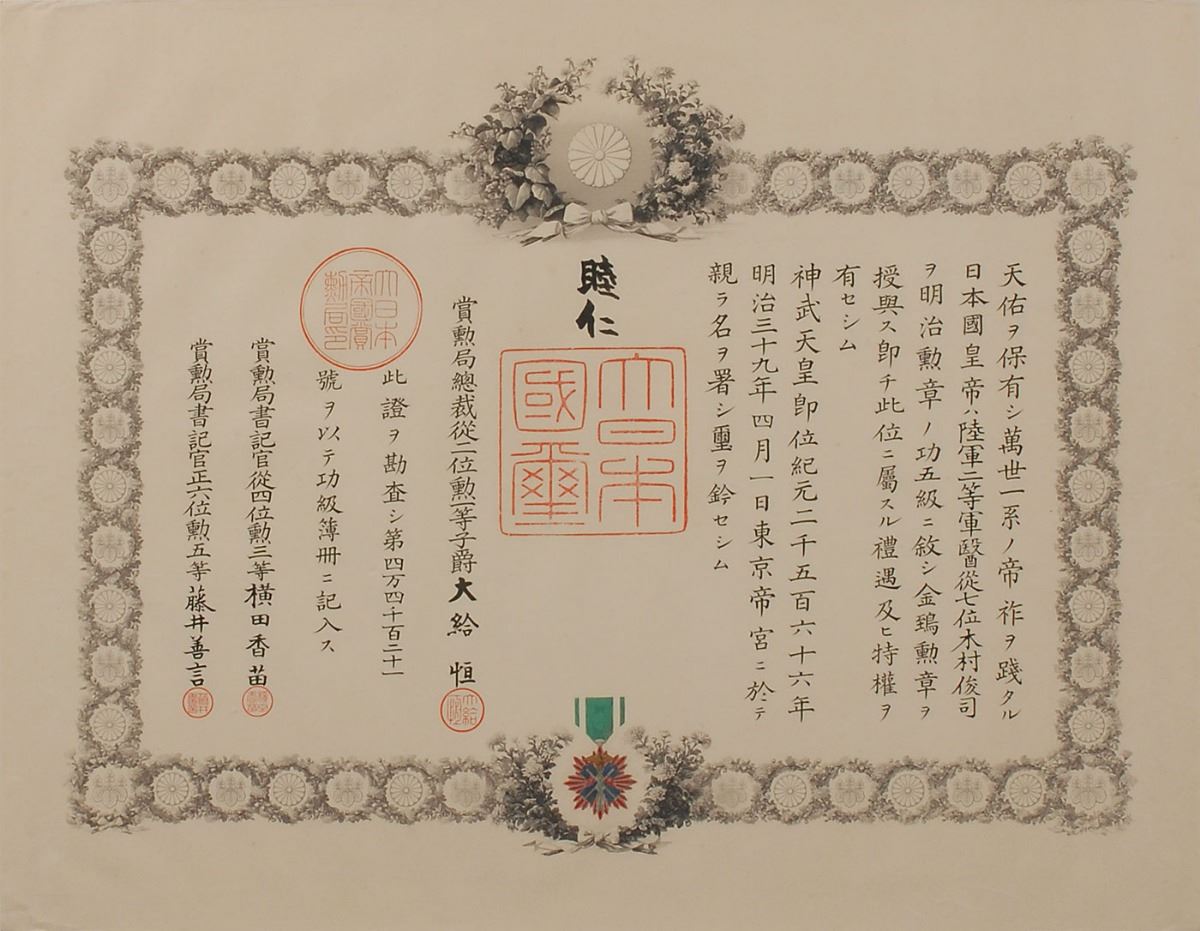 天佑ヲ保有シ萬世一系ノ帝祚ヲ踐タル
日本國皇帝ハ陸軍二等軍醫從七位木村俊司
ヲ明治勲章ノ功五級ニ敘シ金鵄勲章ヲ
授與ス卽チ此位ニ屬スル禮遇及ヒ特權ヲ
有セシム
神武天皇卽位紀元二千五百六十六年
明治三十九年四月一日東京帝宮ニ於テ
親ラ名ヲ署シ璽ヲ鈐セシム
睦仁
大日本
國璽
賞勲局總裁從一位勲一等子爵大給恒
此證ヲ勘査シ第四万四千百二十一
號ヲ以テ功級簿冊ニ記入ス
大日本
帝國賞
勲局印
賞勲局書記官從四位勲三等横田香苗
賞勲局書記官正六位勲五等藤井善言